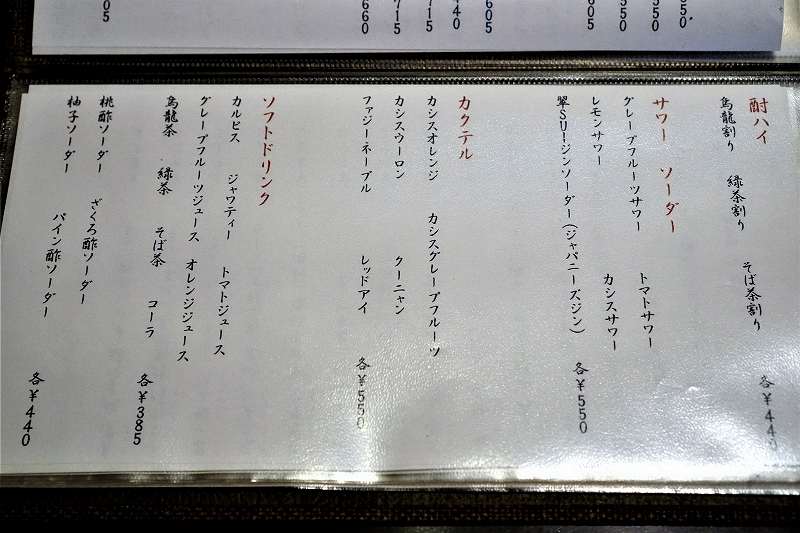 050
550
550
605
605
440
715
715
660
05
酎ハイ
烏龍割り 緑茶割り そば茶割り
各¥440
サワー ソーダー
グレープフルーツサワー トマトサワー
レモンサワー カシスサワー
翠SU!ジンソーダー(ジャパニーズジン)
各¥550
カクテル
カシスオレンジ カシスグレープフルーツ
カシスウーロン クーニャン
ファジーネーブル レッドアイ
各¥550
ソフトドリンク
カルピス ジャワティー トマトジュース
グレープフルーツジュース オレンジジュース
烏龍茶 緑茶 そば茶 コーラ
各¥385
桃酢ソーダー ざくろ酢ソーダー
柚子ソーダー パイン酢ソーダー
各¥440